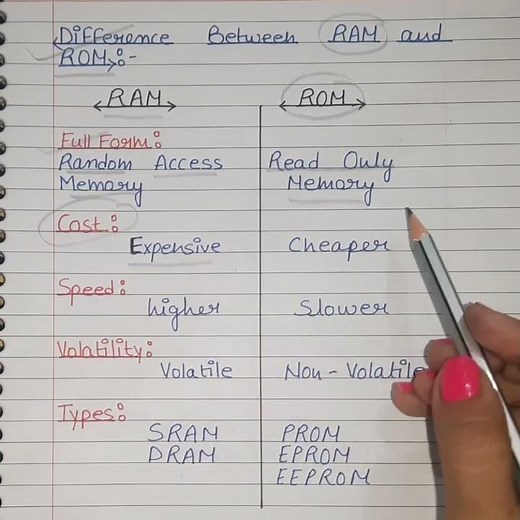 Difference Between RAM and
ROM:-
RAM ROM
Full Form:
Random Access Read Only
Memory Memory
Cost:
Expensive Cheaper
Speed:
higher Slower
Volatility:
Volatile Non-Volatile
Types:
SRAM PROM
DRAM EPROM
EEPROM